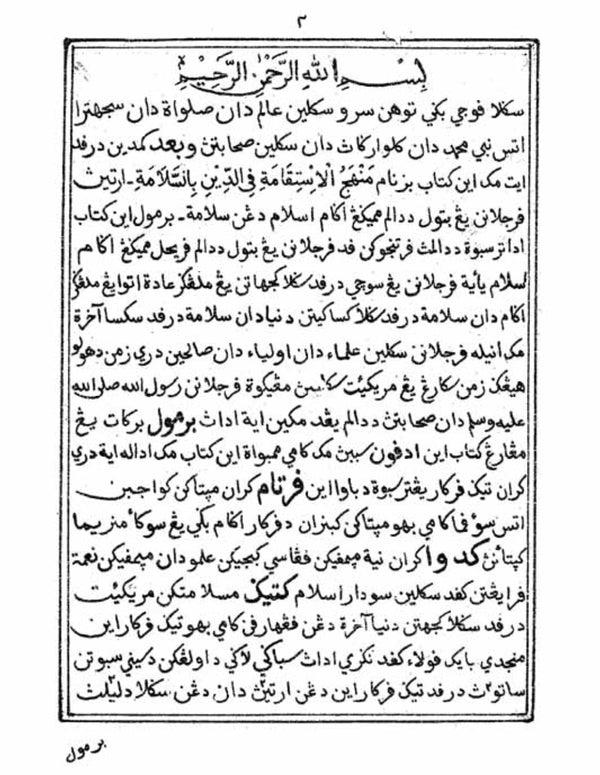 ٢
بِسْمِ اللهِ الرَّحْمٰنِ الرَّحِيْمِ
سكلا فوجي بكي توهن سرو سكلين عالم دان صلواة دان سجهترا
اتس نبي محمد دان كلوارڬاث دان سكلين صحابتث وبعد كمدين درفد
ايت مك اين كتاب برنام مَنْهَجُ الْاِسْتِقَامَةِ فِى الدِّيْنِ بِالسَّلَامَةِ ـ ارتيث
فرجلانن يڠ بتول ددالم مميكڠ اڬام اسلام دڠن سلامة ـ برمول اين كتاب
ادالر سبوة ددالمث فرتنجوكن فد فرجلانن يڠ بتول ددالم فريحل مميكڠ اڬام
اسلام يأية فرجلانن يڠ سوچي درفد سكلا كجهاتن يڠ ملڠڬر عادة اتوا يڠ ملڠڬر
اڬام دان سلامة درفد سكلا كساكيتن دنيا دان سلامة درفد سكسا آخرة
مك انيله فرجلانن سكلين علماء دان اولياء دان صالحين دري زمن دهولو
هيڠڬ زمن سكارڠ يڠ مريكئيت مڠيكوة فرجلانن رسول الله صلى الله
عليه وسلم دان صحابتث ددالم يڠد مكين اية اداث برمول بركات يڠ
مڠارڠ كتاب اين ادفون سببث مك كامي ممبواة اين كتاب مك اداله اية دري
كران تيڬ فركار يڠتر سبوة دباوا اين فرتام كران مپتاكن كواجبن
اتس سؤڤا كامي بهو مپتاكن كبنران دفركار اڬام بكي يڠ سوكأ منريما
كپتأنث كدوا كران نية ميمفيكن فڠاسي كبجيكن علمو دان ميمفيكن نعمة
فرايڠتن كفد سكلين سودار اسلام كتيڬ مسلامتكن مريكئيت
درفد سكلا كجهتن دنيا آخرة دڠن فڠهارفن كامي بهو تيڬ فركار اين
منجدي بايك فولاء كفد نڬري اداث سباڬي لاڬي داولڠكن دسيني سبوتن
ساتو٢ث درفد تيڬ فركار اين دڠن ارتيث دان دڠن سكلا دليلث
برمول